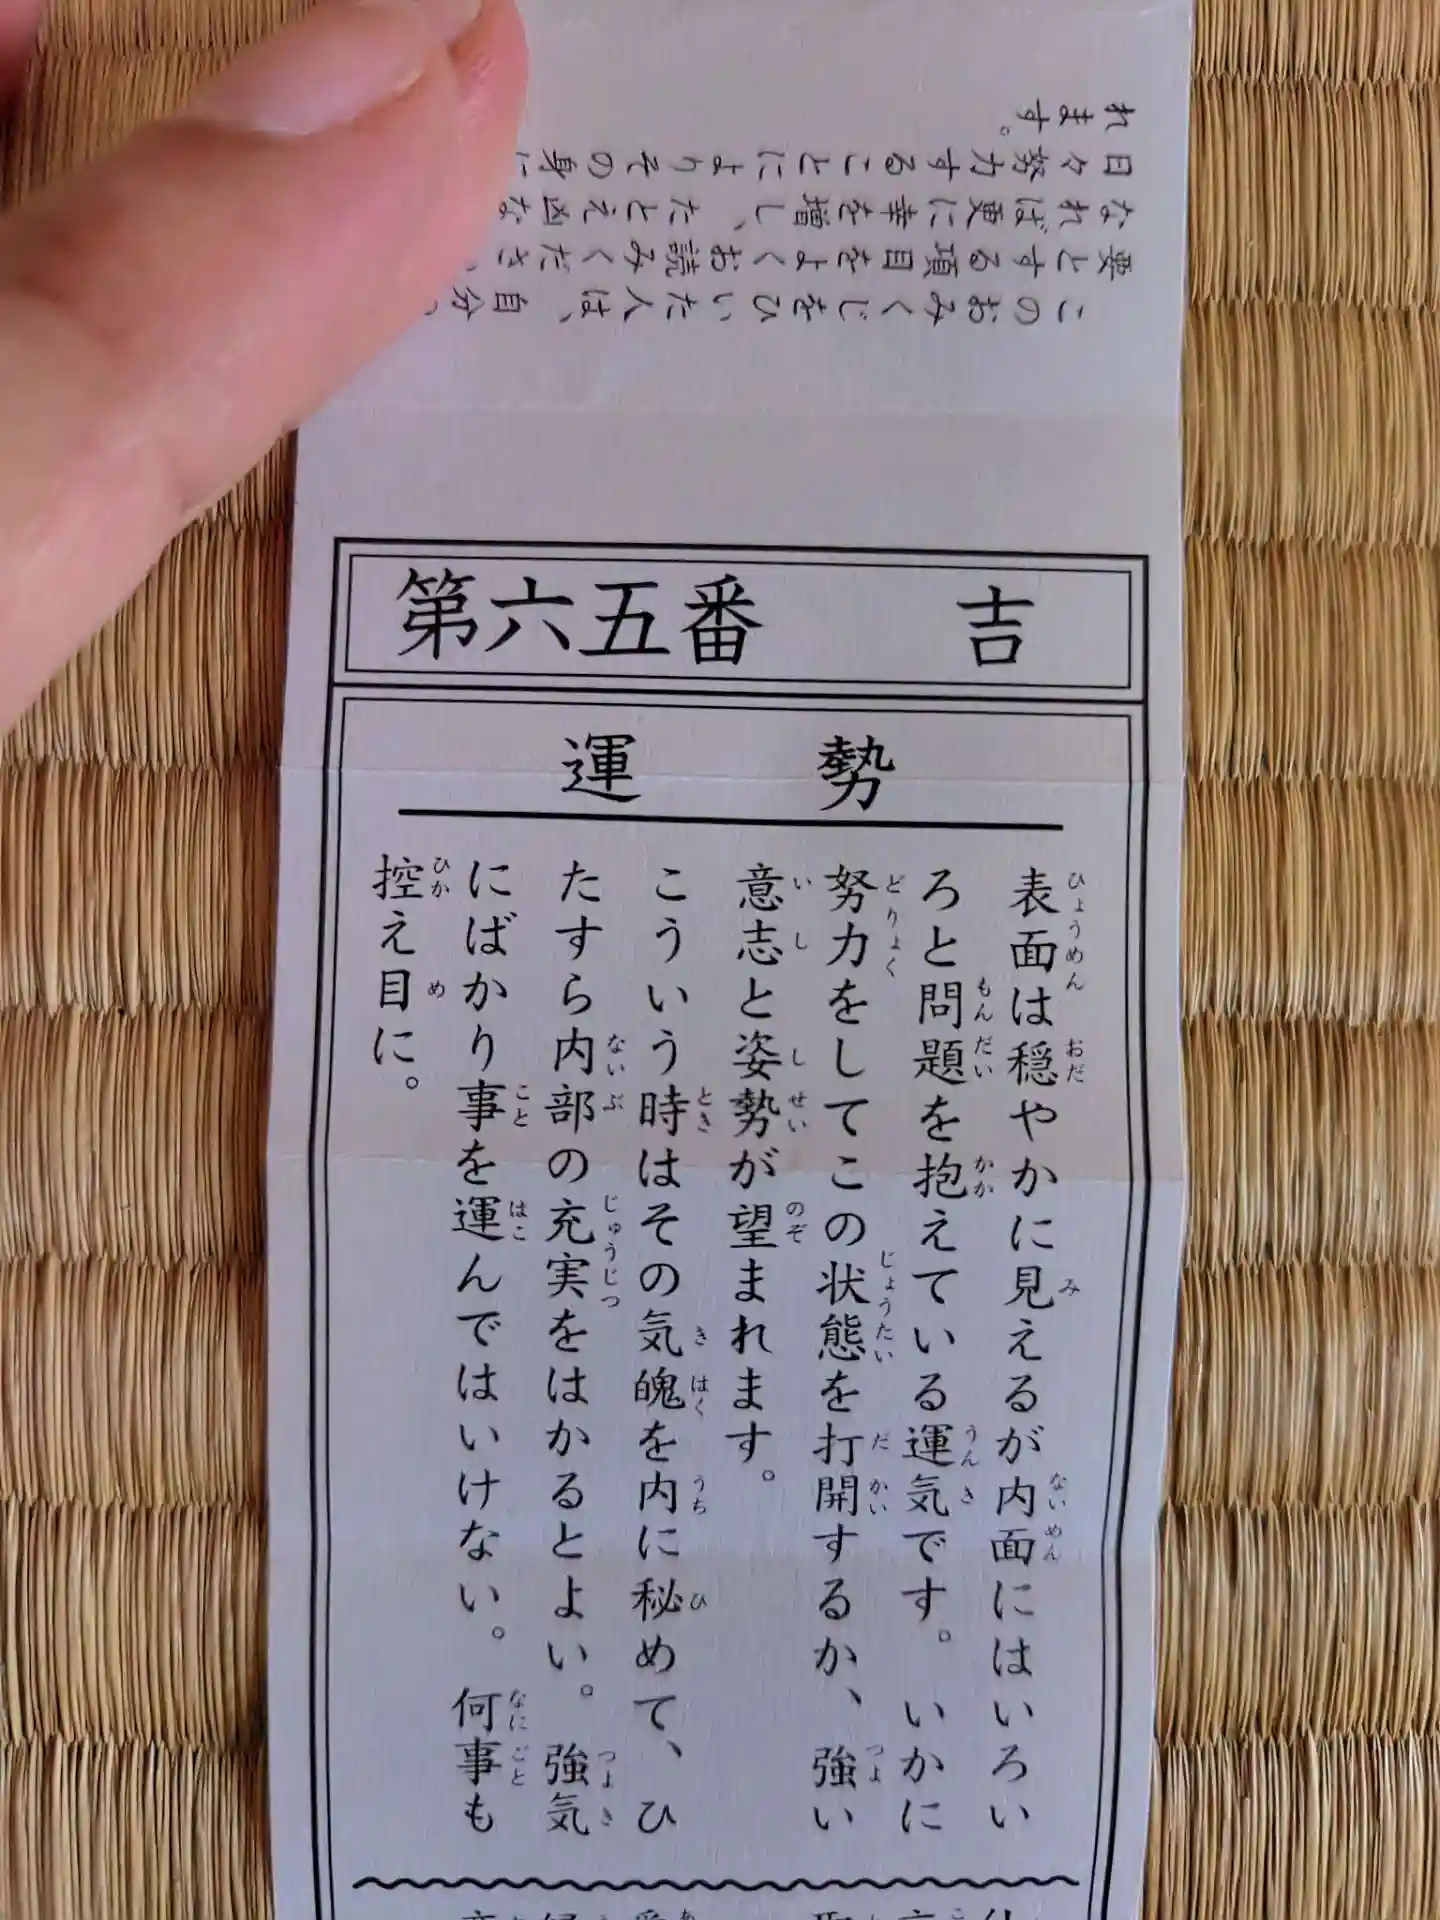 第六五番　吉
運　勢
表面は穏やかに見えるが内面にはいろい
ろと問題を抱えている運気です。いかに
努力をしてこの状態を打開するか、強い
意志と姿勢が望まれます。
こういう時はその気魄を内に秘めて、ひ
たすら内部の充実をはかるとよい。強気
にばかり事を運んではいけない。何事も
控え目に。
このおみくじをひいた人は、自分
要とする項目をよくお読みくださ
なれば更に幸を増し、たとえ凶な
日々努力することによりその身に
れます。